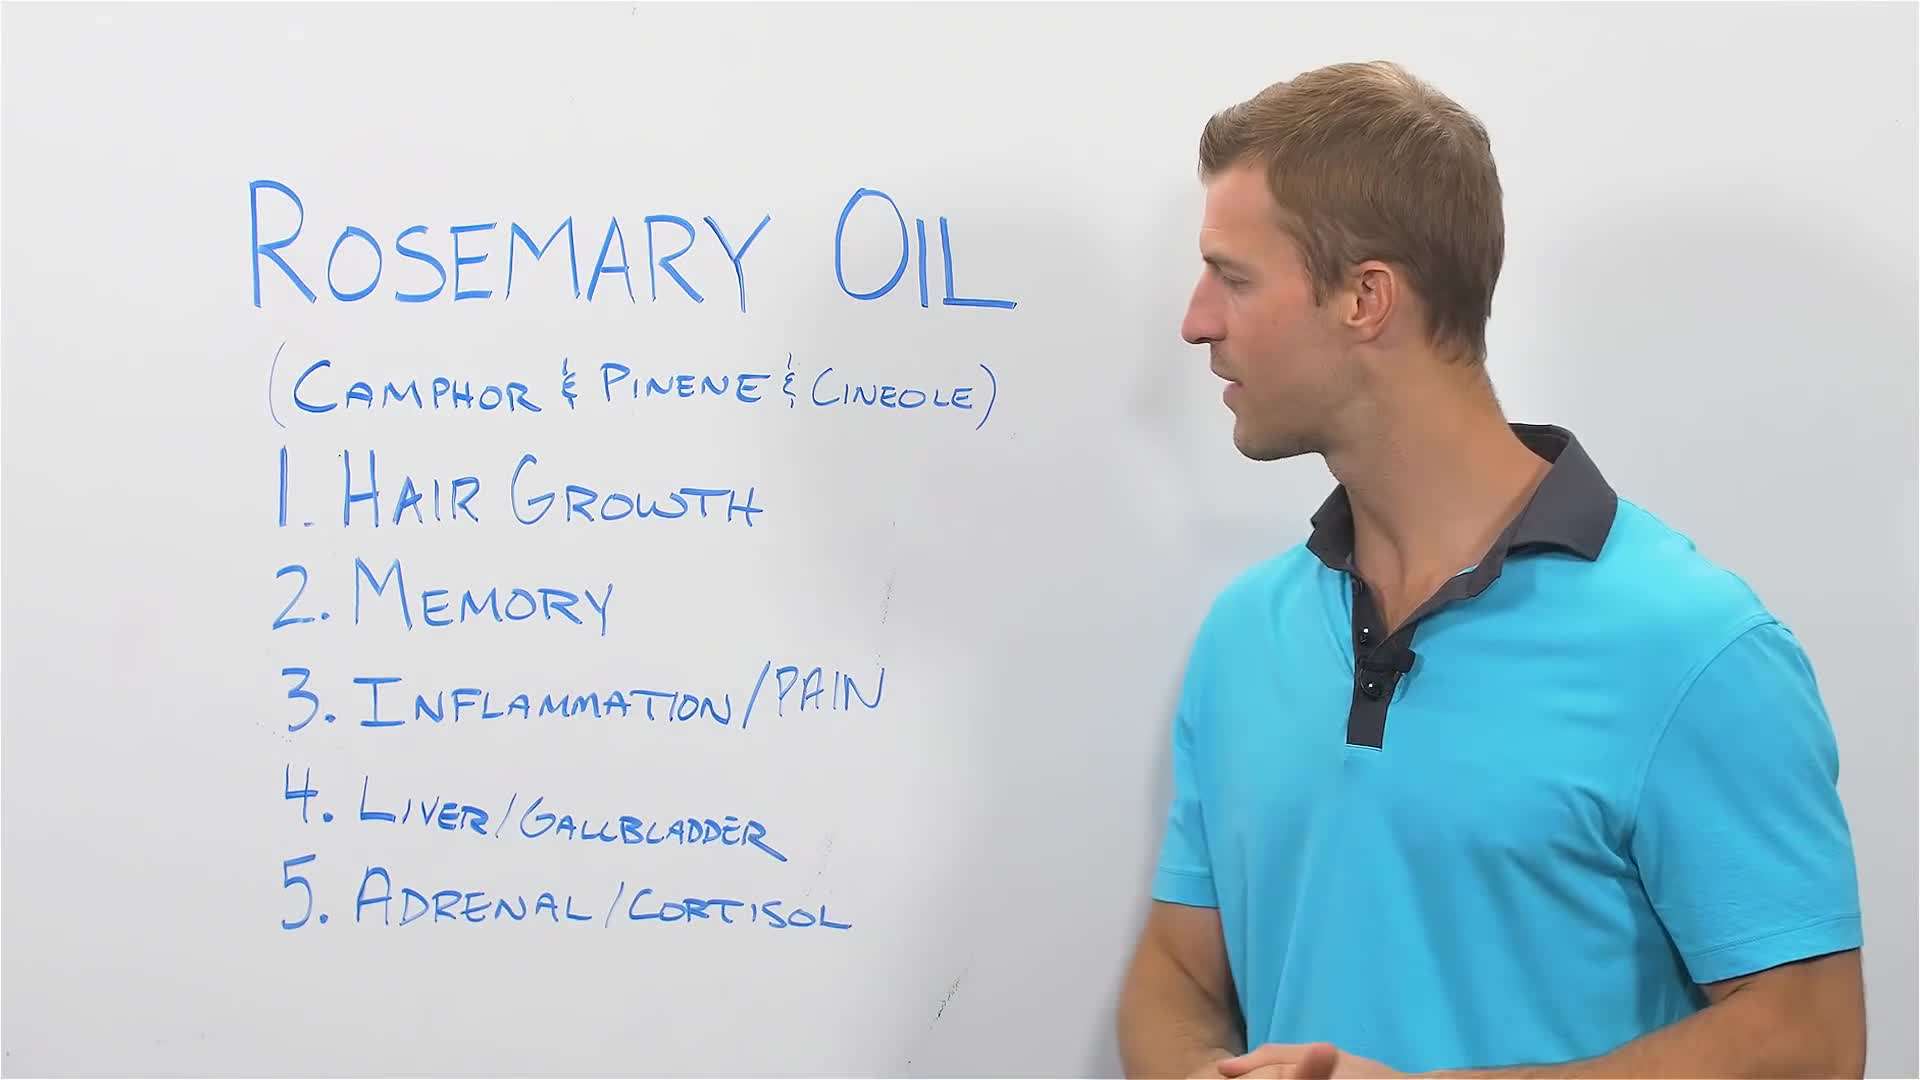 ROSEMARY OIL
(CAMPHOR & PINENE & CINEOLE)
1. HAIR GROWTH
2. MEMORY
3. INFLAMMATION/PAIN
4. LIVER/GALLBLADDER
5. ADRENAL/CORTISOL